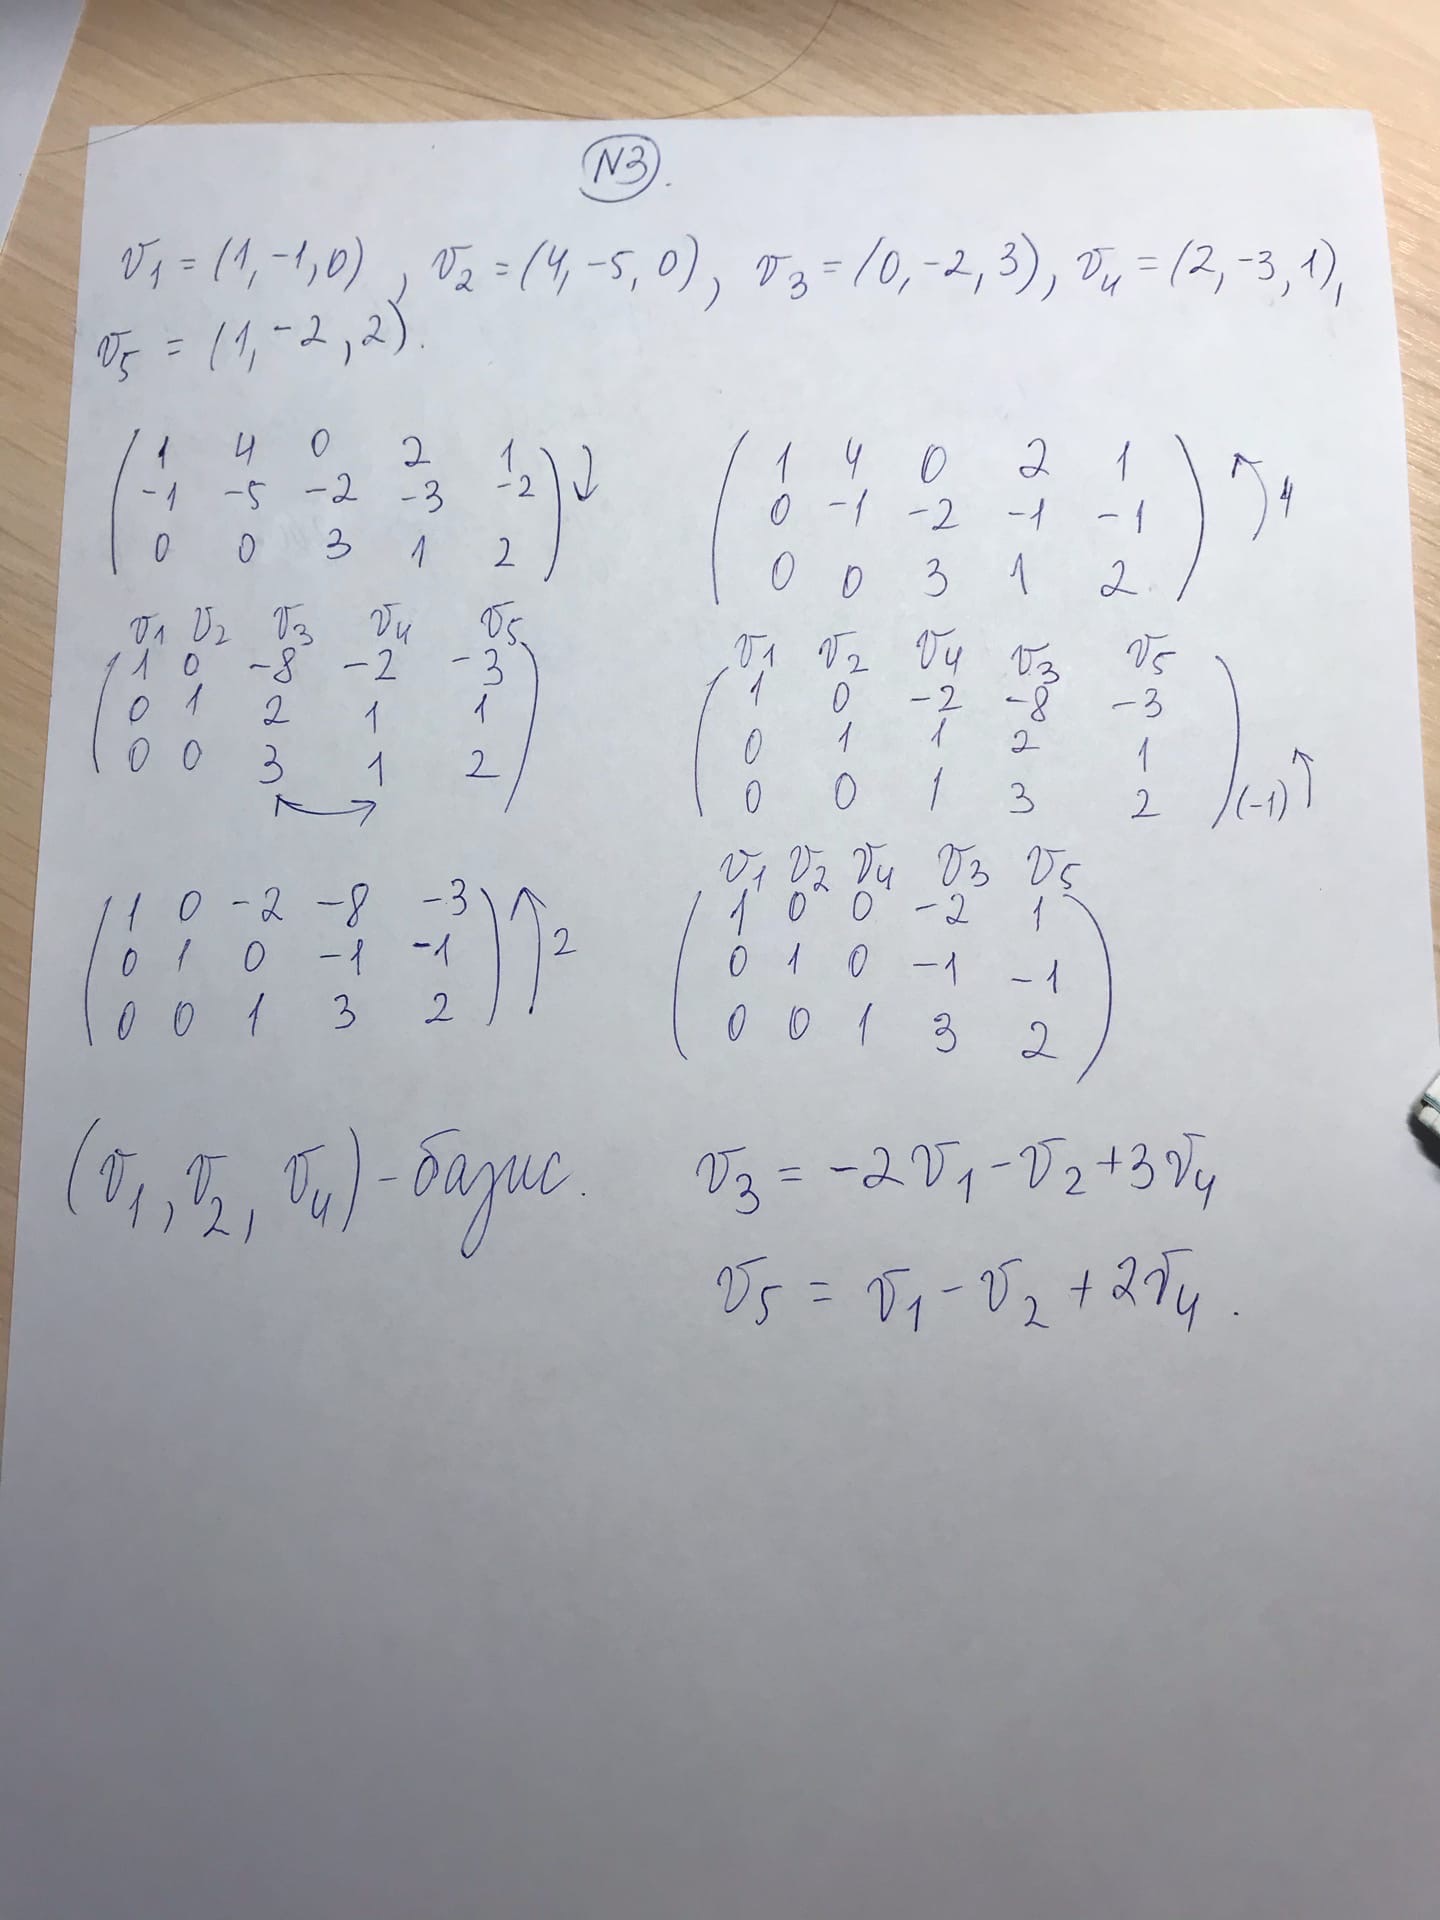 N3.
v1 = (1, -1, 0), v2 = (4, -5, 0), v3 = (0, -2, 3), v4 = (2, -3, 1),
v5 = (1, -2, 2).
1 4 0 2 1
-1 -5 -2 -3 -2
0 0 3 1 2
1 4 0 2 1
0 -1 -2 -1 -1
0 0 3 1 2
4
v1 v2 v3 v4 v5
1 0 -8 -2 -3
0 1 2 1 1
0 0 3 1 2
v1 v2 v4 v3 v5
1 0 -2 -8 -3
0 1 1 2 1
0 0 1 3 2
(-1)
1 0 -2 -8 -3
0 1 0 -1 -1
0 0 1 3 2
2
v1 v2 v4 v3 v5
1 0 0 -2 1
0 1 0 -1 -1
0 0 1 3 2
(v1, v2, v4) - базис.
v3 = -2v1 - v2 + 3v4
v5 = v1 - v2 + 2v4.